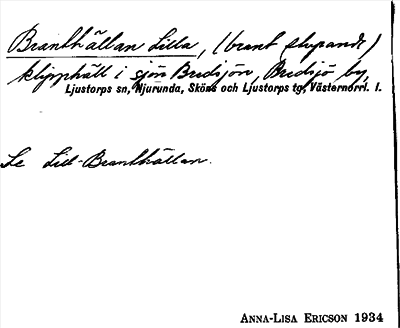 Branthällan Lilla, (brant stupande)
klipphäll i sjön Bredsjön, Bredsjö by,
Ljustorps sn, Njurunda, Sköns och Ljustorps tg, Västernorrl. l.
Se Lill-Branthällan.
ANNA-LISA ERICSON 1934